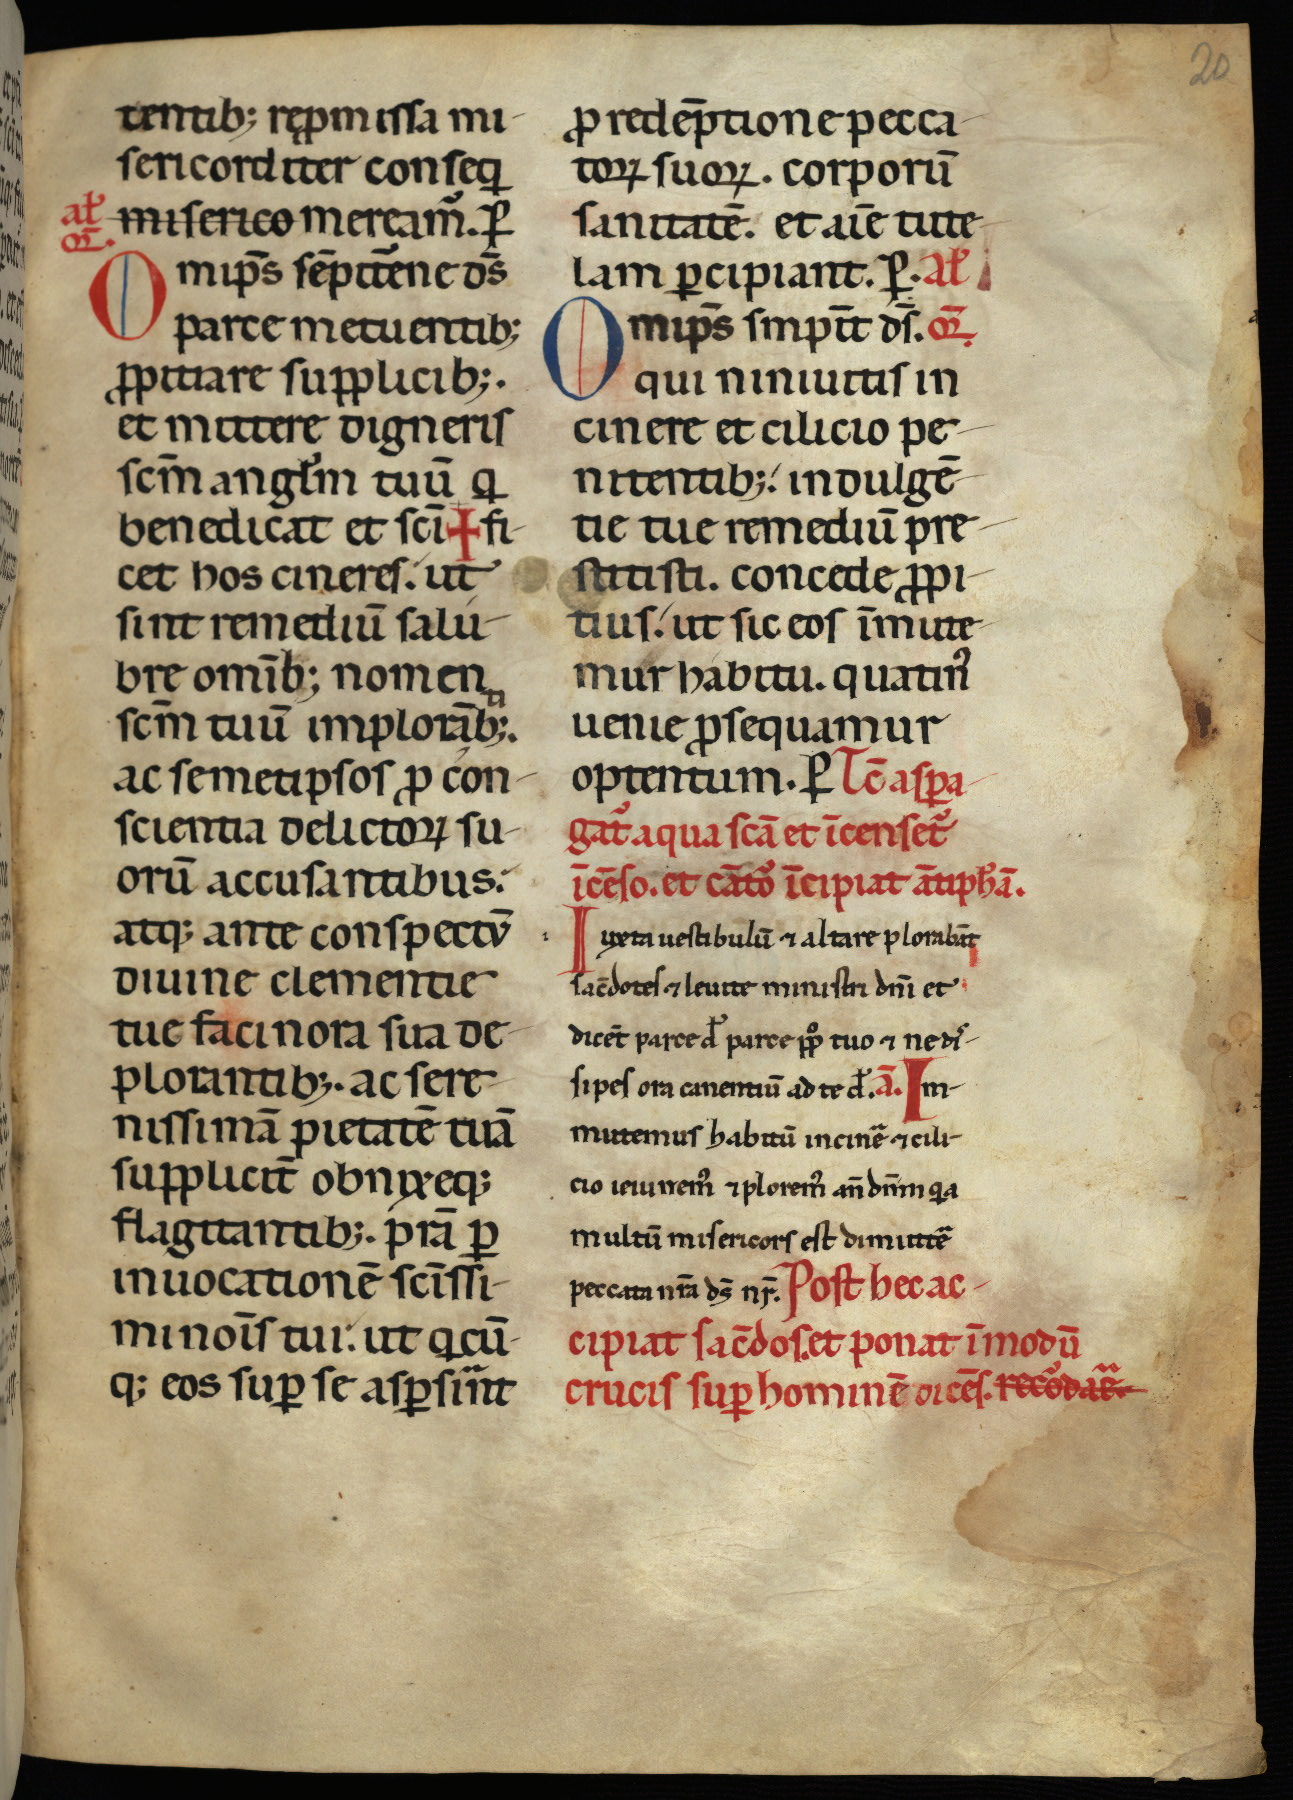 20
tentib; rep̱missa mi-
sericorditer conseq̱
misericomeream᷑. ꝑ
al᷑
oō.
Omip̄s sēpit̄ne ds̄
parce metuentib;
ꝓpitiare supplicib;.
et mittere digneris
scm̄ angłm tuū q̱
benedicat et scī✝fi-
cet hos cineres. ut
sint remediū salu-
bre omīb; nomen
scm̄ tuū implorātib;.
ac semetipsos ꝓ con-
scientia delictoꝝ su-
orū accusantibus.
atq; ante conspectū
diuine clementie
tue facinora sua de-
plorantib;. ac sere-
nissimā pietatē tuā
supplicit̄ obnixeq;
flagitantib;. p̄ra ꝑ
inuocationē scīssi-
mi noīs tui. ut qcū-
q; eos suꝑ se asꝑsint
ꝓ redēptione pecca-
toꝝ suoꝝ. corporū
sanitatē. et aīe tute-
lam ꝑcipiant. ꝑ. al᷑
Omip̄s smpit̄ ds̄. oō.
qui niniuitis in
cinere et cilicio pe-
nitentib;. indulgē-
tie tue remediū pre-
stitisti. concede ꝓpi-
tius. ut sic eos īmite-
mur habitu. quatin᷒
uenie ꝓsequamur
optentum. ꝑ Tc̄ asꝑa-
gat᷑ aqua scā et īcenset᷑
īcēso. et cāto᷑ īcipiat ātiphā.
Iuxta uestibulū ⁊ altare plorabāt
sac̄dotes ⁊ leuite ministri dn̄i et
dicēt parce d᷑ parce pp̄lo tuo ⁊ ne dis-
sipes ora canentiū ad te d᷑. ā. Im-
mutemus habitū in cin̄e ⁊ cili-
cio ieiunem᷒ ⁊ plorem᷒ an̄ dn̄m qa
multū misericors est dimittē
peccata nr̄a ds̄ nr̄. Post hec ac-
cipiat sac̄dos. et ponat ī modū
crucis suꝑ hominē dicēs. recōdaē